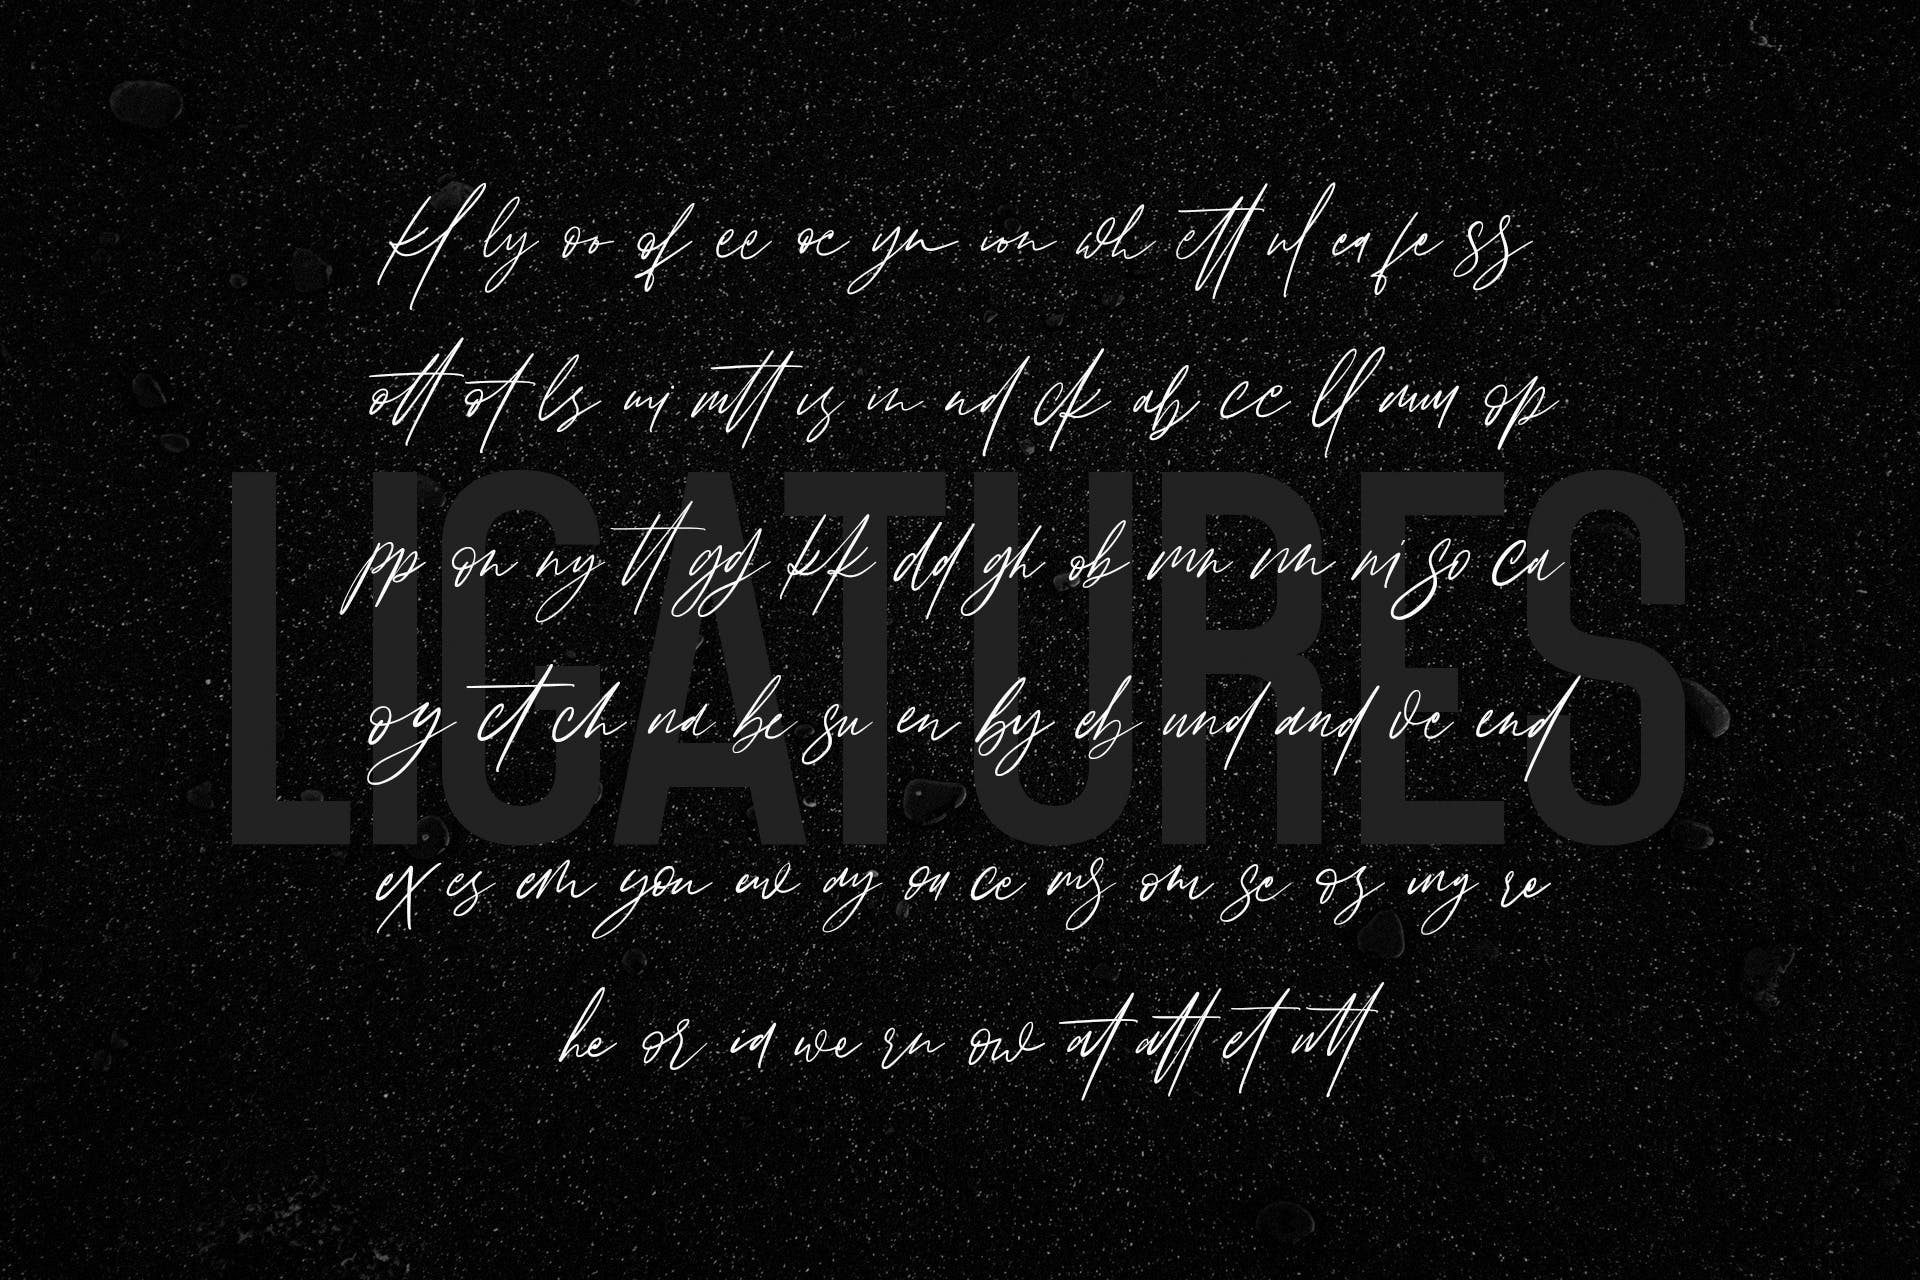 kl ly oo of ee oc yn ion wh ett ul ea fe ss
ott ot ls ui mtt is in nd ck ab cc ll mm op
LIGATURES
pp on ny tt gg kk dd gh ob mn nn ni so ca
oy ct ch na be su en by eb und and ve end
ex es em you ew ay oa ce ms om se os ing re
he or id we rn ow at att et utt